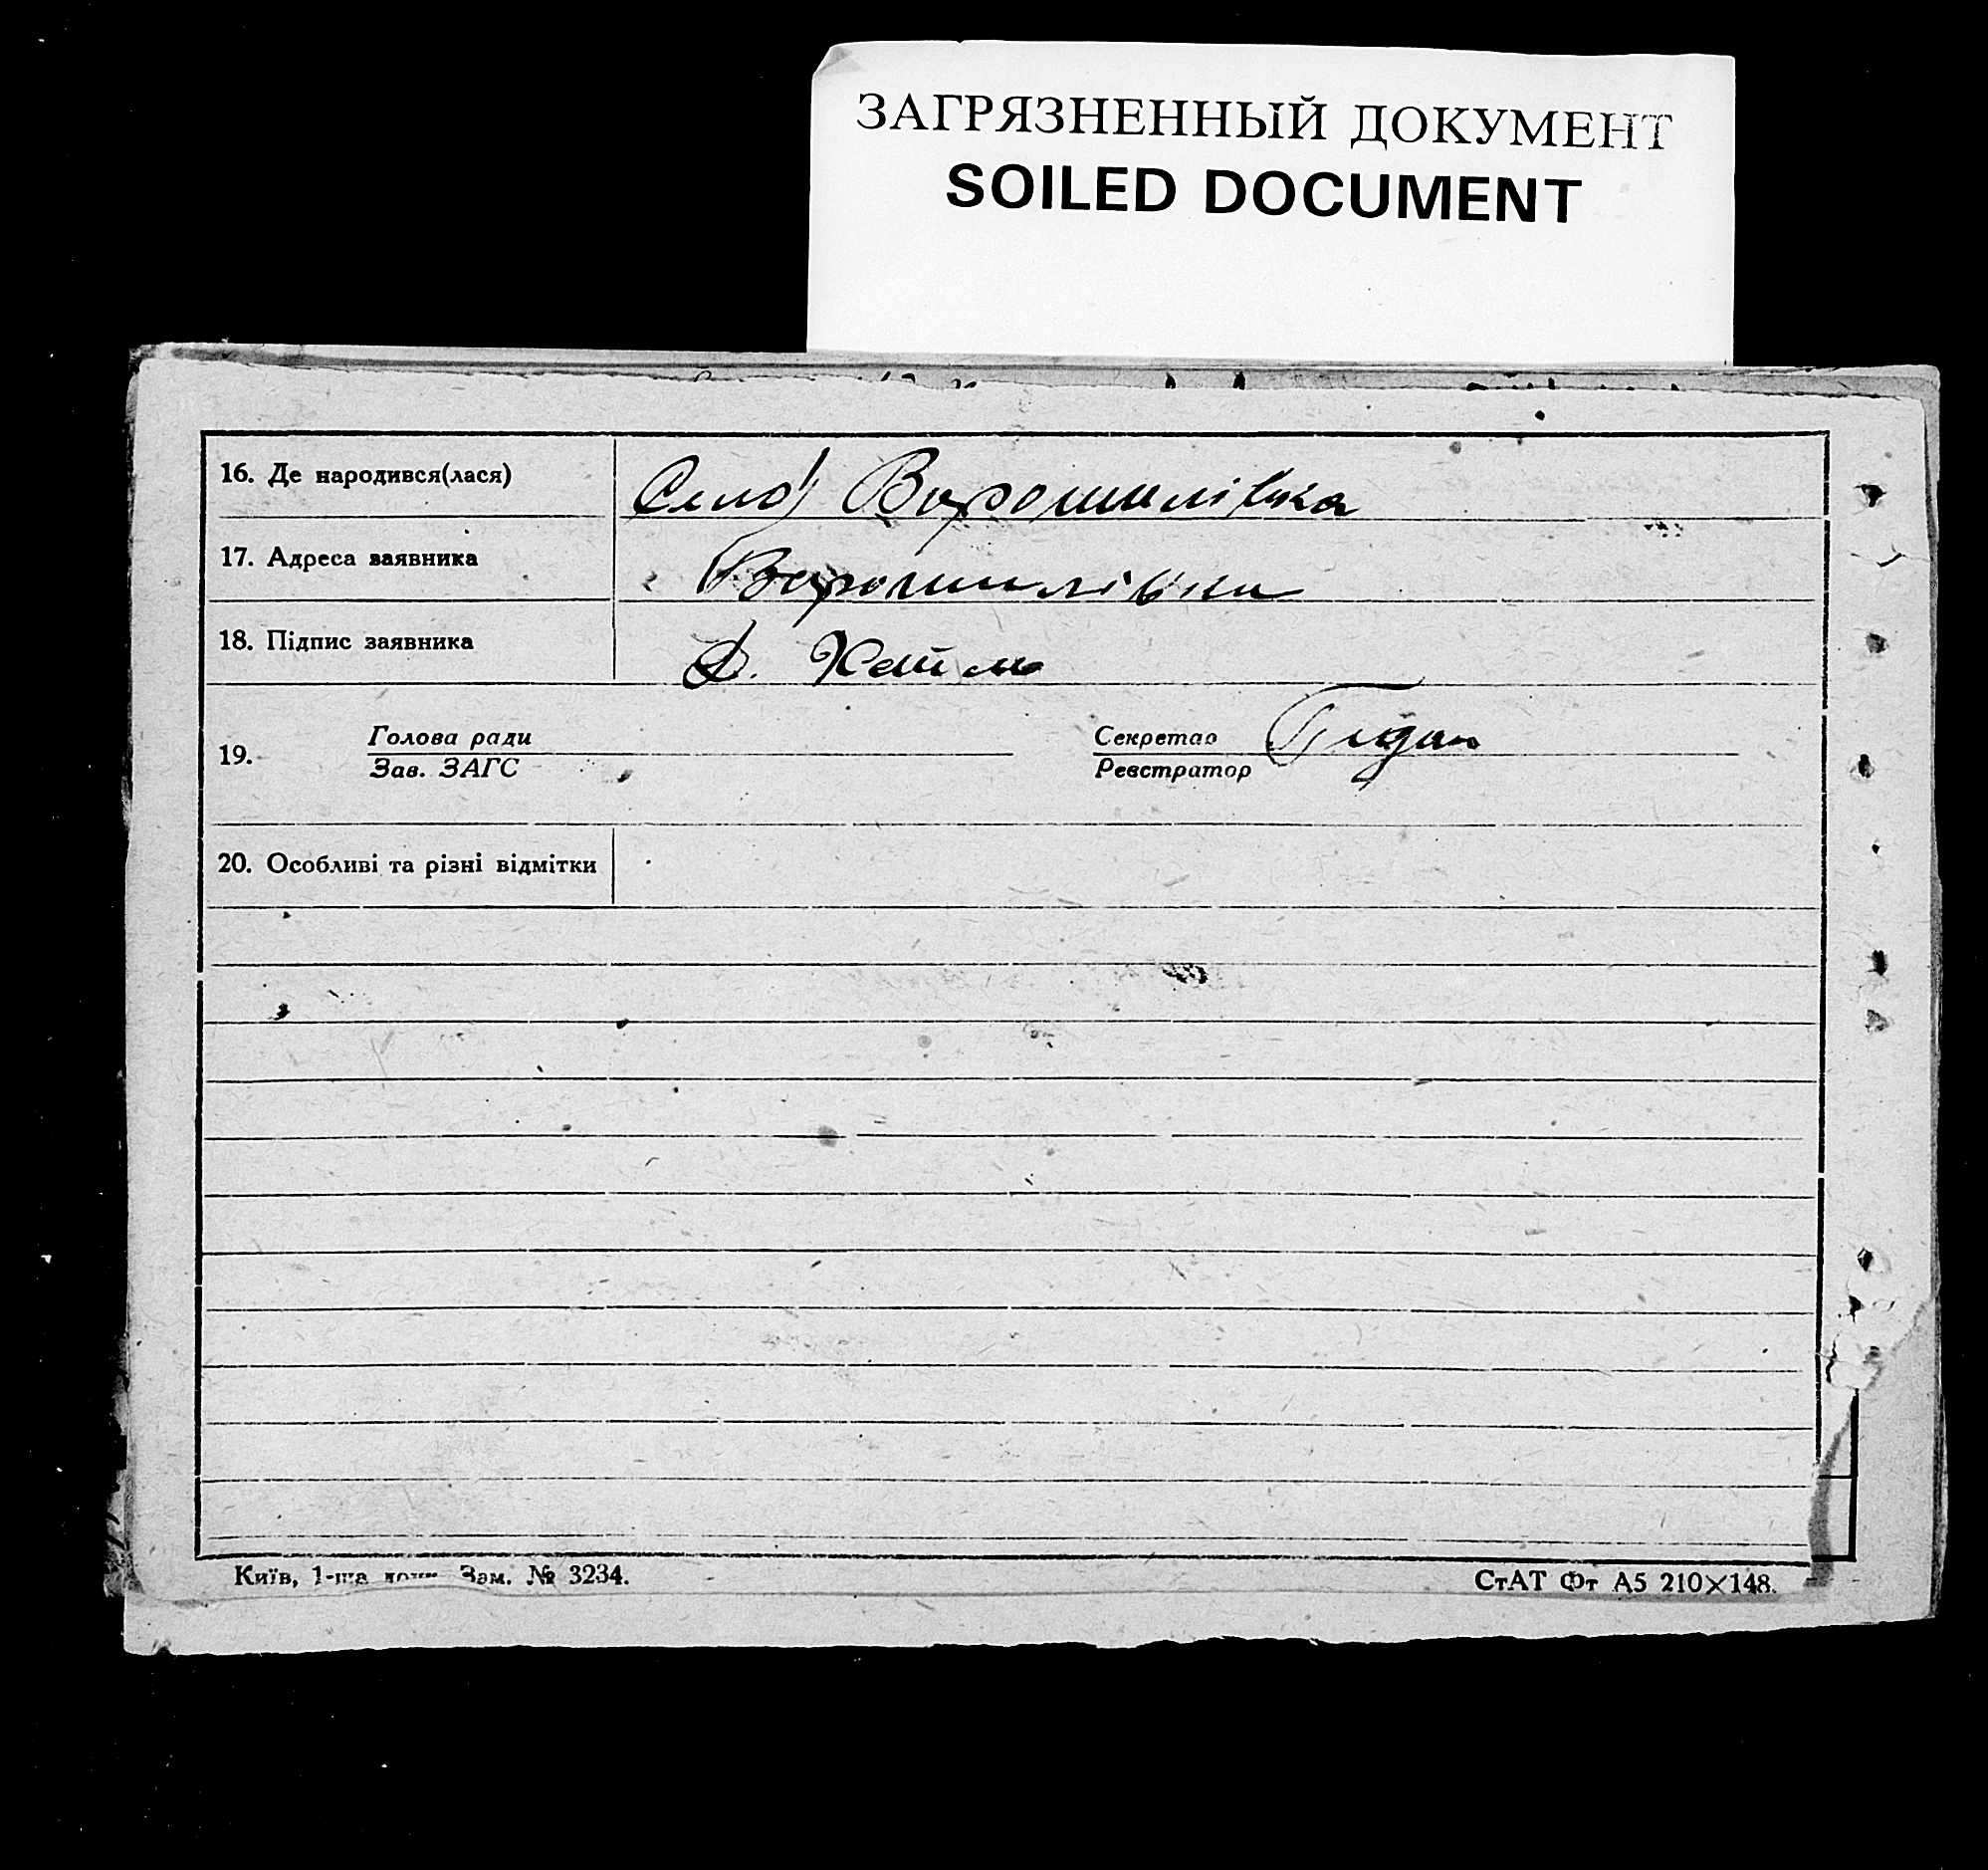 ЗАГРЯЗНЕННЫЙ ДОКУМЕНТ
SOILED DOCUMENT
16. Де народився(лася) Село Ворошилівка
17. Адреса заявника Ворошилівка
18. Підпис заявника
19. Голова ради Секретар
Зав. ЗАГС Реєстратор
20. Особливі та різні відмітки
Київ, 1-ша Зам. № 3234. СтАТ Фт А5 210×148.